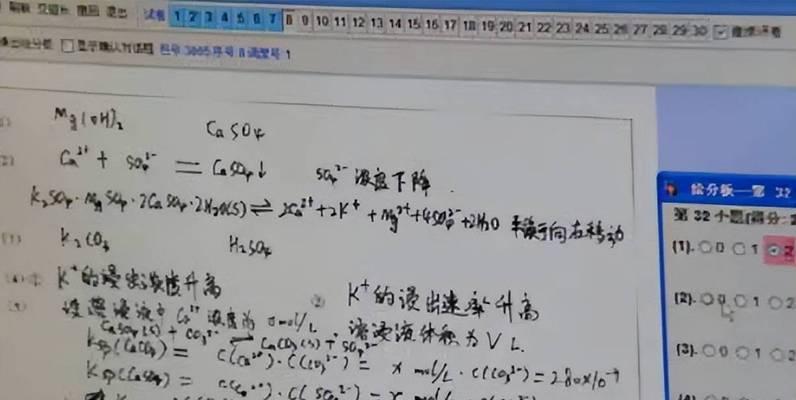 试卷 1 2 3 4 5 6 7 8 9 10 11 12 13 14 15 16 17 18 19 20 21 22 23 24 25 26 27 28 29 30
显示确认对话框
(1) Mg(OH)₂ CaSO₄
(2) Ca²⁺ + SO₄²⁻ = CaSO₄↓ SO₄²⁻浓度下降.
K₂SO₄·MgSO₄·2CaSO₄·2H₂O(s) ⇌ 2Ca²⁺+2K⁺+Mg²⁺+4SO₄²⁻+2H₂O 平衡向右移动
(3) K₂CO₃ H₂SO₄
(4)① K⁺的浸出浓度升高
② K⁺的浸出速率升高
(5) 设 溶浸液中Ca²⁺浓度为 mol/L 溶浸液体积为 V L.
CaSO₄(s) + CO₃²⁻ ⇌ CaCO₃(s) + SO₄²⁻
Ksp(CaCO₃) = c(Ca²⁺)·c(CO₃²⁻) = x mol/L · c(CO₃²⁻) = 2.80×10⁻⁹
Ksp(CaSO₄) = c(Ca²⁺)·c(SO₄²⁻) = x mol/L
给分板—第 32
第 32 小题(得分:
(1). 0 1 2
(2). 0 1 2
(3). 0 1 2